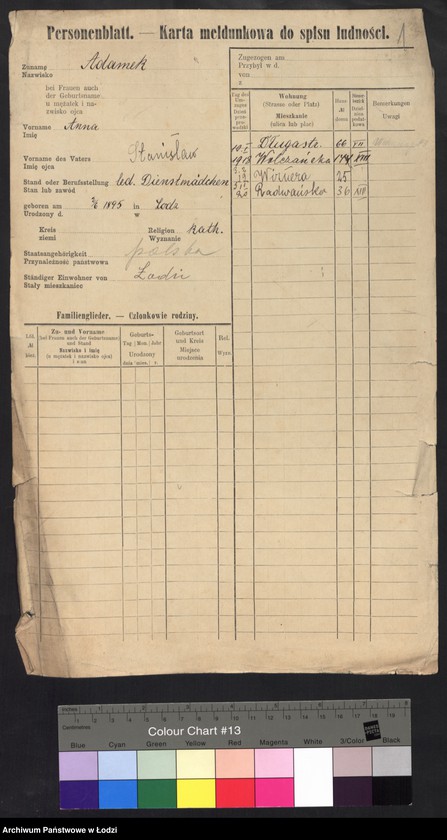 Personenblatt. — Karta meldunkowa do spisu ludności.
1
Zuname Adamek
Nazwisko
bei Frauen auch
der Geburtsname
u mężatek i na-
zwisko ojca
Vorname Anna
Imię
Vorname des Vaters Stanisław
Imię ojca
Stand oder Berufsstellung led. Dienstmädchen
Stan lub zawód
geboren am 1895 in Lodz
Urodzony d. w
Kreis Religion kath.
ziemi Wyznanie
Staatsangehörigkeit polska
Przynależność państwowa
Ständiger Einwohner von Łodzi
Stały mieszkaniec
Zugezogen am
Przybył w d.
von
z
Tag des Um-zuges Dzień prze-prowadzki
Wohnung
(Strasse oder Platz)
Mieszkanie
(ulica lub plac)
Haus № domu
Bemerkungen
Uwagi
10. I Długastr. 66 VII
1918 Wolczańska
19 Wólnera 25
20 Radwańska 36 XIII
Familienglieder. — Członkowie rodziny.
Lfd. № bież.
Zu- und Vorname
(bei Frauen auch der Geburtsname)
und Stand
Nazwisko i imię
(u mężatek i nazwisko ojca)
i stan
Geburts-
Tag Mon. Jahr
Urodzony
dnia mies. r.
Geburtsort
und Kreis
Miejsce
urodzenia
Rel.
Wyzn.
Inches 1 2 3 4 5 6 7 8
Centimetres 1 2 3 4 5 6 7 8 9 10 11 12 13 14 15 16 17 18 19
Colour Chart #13
Blue Cyan Green Yellow Red Magenta White 3/Color Black
Archiwum Państwowe w Łodzi